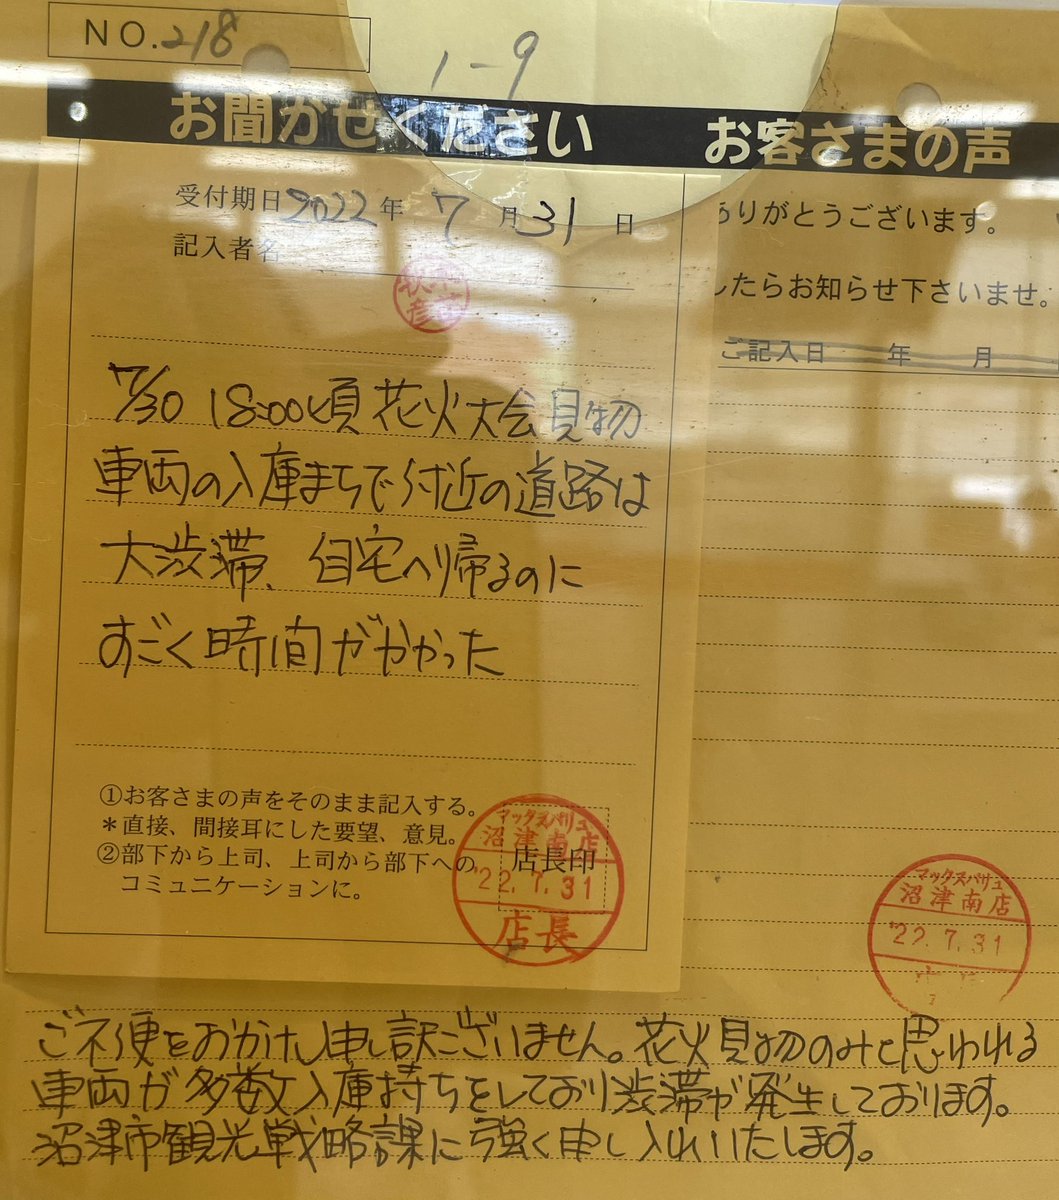 NO.218
1-9
お聞かせください お客さまの声
受付期日2022年7月31日
ありがとうございます。
記入者名
したらお知らせ下さいませ。
ご記入日 年 月
7/30 18:00頃 花火大会見物
車両の入庫まちで付近の道路は
大渋滞、自宅へ帰るのに
すごく時間がかかった
①お客さまの声をそのまま記入する。
＊直接、間接耳にした要望、意見。
②部下から上司、上司から部下への
コミュニケーションに。
店長印
マックスバリュ
沼津南店
'22.7.31
店長
マックスバリュ
沼津南店
'22.7.31
ご不便をおかけし申し訳ございません。花火見物のみと思われる
車両が多数入庫持ちをしており渋滞が発生しております。
沼津市観光戦略課に強く申し入れいたします。